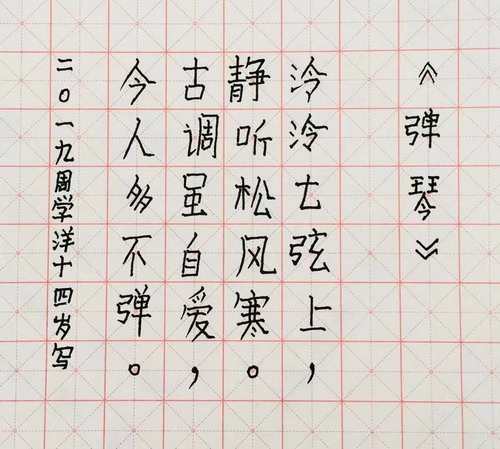 《弹琴》
泠泠七弦上，
静听松风寒。
古调虽自爱，
今人多不弹。
二〇一九周学洋十四岁写